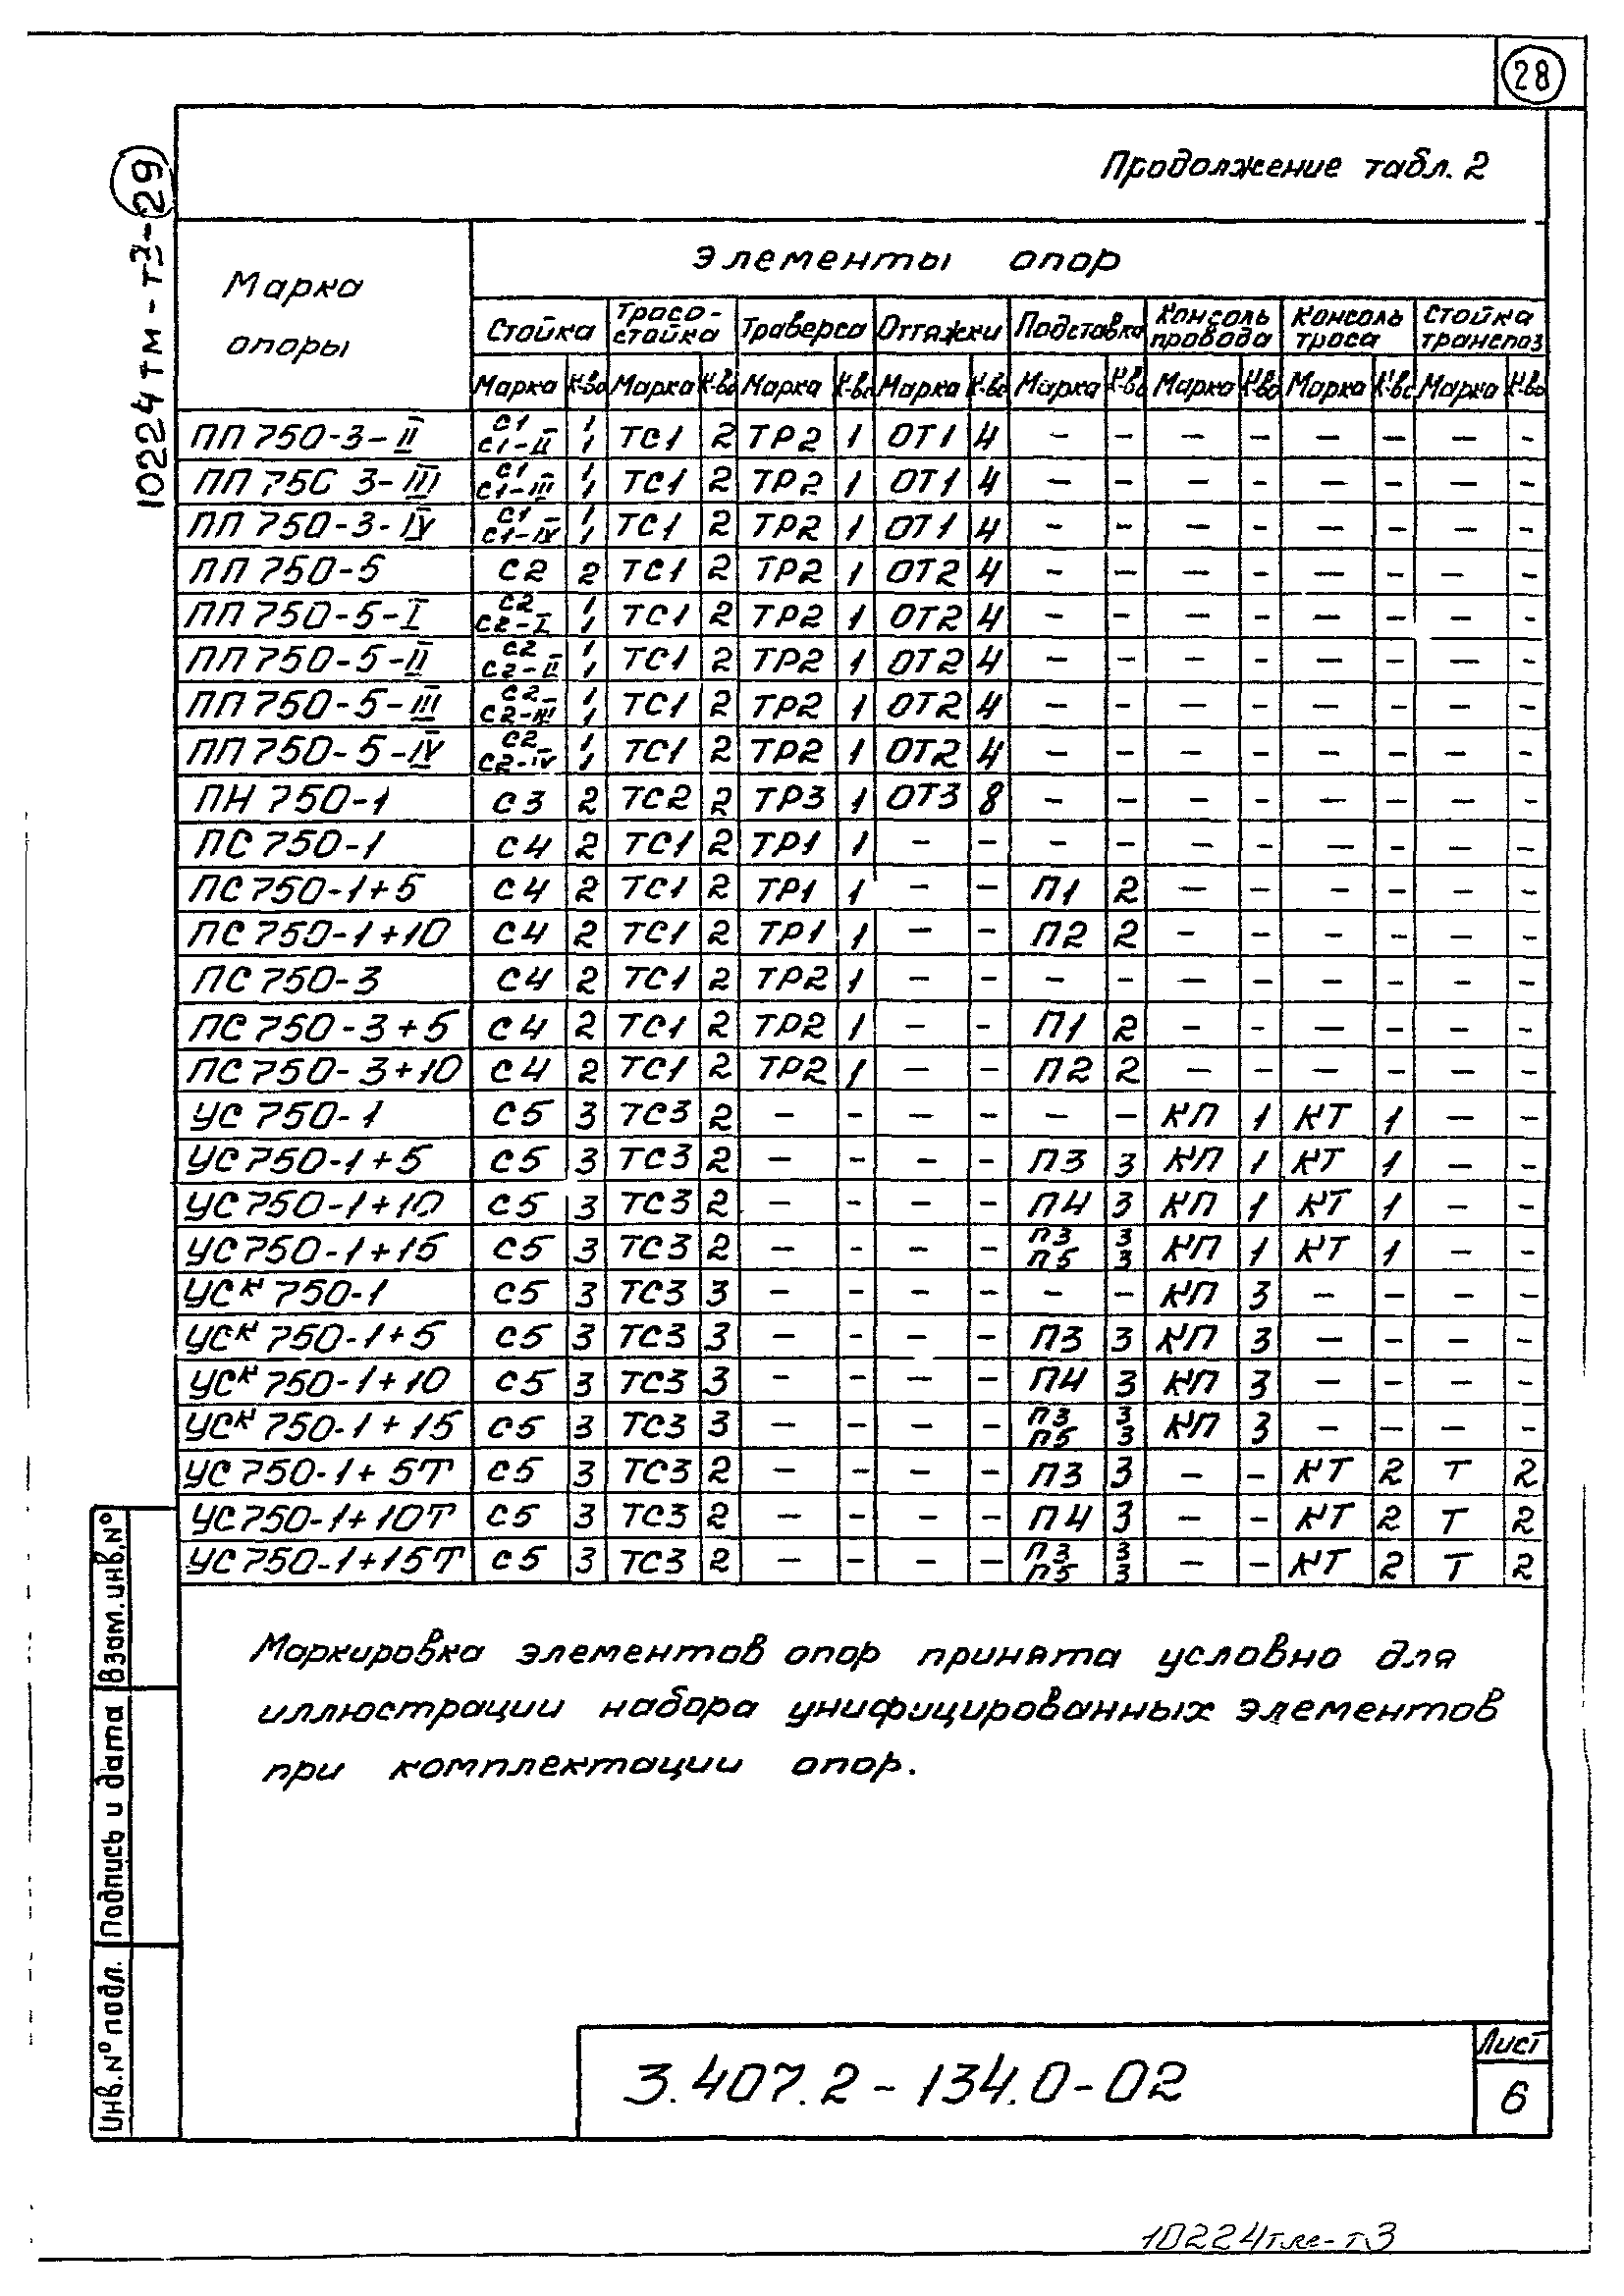 28
10224тм-т3-29
Продолжение табл. 2
Марка опоры
Элементы опор
Стойка Тросостойка Траверса Оттяжки Подставка Консоль провода Консоль троса Стойка транспоз
Марка К-во Марка К-во Марка К-во Марка К-во Марка К-во Марка К-во Марка К-во Марка К-во
ПП 750-3-II С1 С1-II 1 1 ТС1 2 ТР2 1 ОТ1 4 – – – – – – – –
ПП 750 3-III С1 С1-III 1 1 ТС1 2 ТР2 1 ОТ1 4 – – – – – – – –
ПП 750-3-IV С1 С1-IV 1 1 ТС1 2 ТР2 1 ОТ1 4 – – – – – – – –
ПП 750-5 С2 2 ТС1 2 ТР2 1 ОТ2 4 – – – – – – – –
ПП 750-5-I С2 С2-I 1 1 ТС1 2 ТР2 1 ОТ2 4 – – – – – – – –
ПП 750-5-II С2 С2-II 1 1 ТС1 2 ТР2 1 ОТ2 4 – – – – – – – –
ПП 750-5-III С2 С2-III 1 1 ТС1 2 ТР2 1 ОТ2 4 – – – – – – – –
ПП 750-5-IV С2 С2-IV 1 1 ТС1 2 ТР2 1 ОТ2 4 – – – – – – – –
ПН 750-1 С3 2 ТС2 2 ТР3 1 ОТ3 8 – – – – – – – –
ПС 750-1 С4 2 ТС1 2 ТР1 1 – – – – – – – – – –
ПС 750-1+5 С4 2 ТС1 2 ТР1 1 – – П1 2 – – – – – –
ПС 750-1+10 С4 2 ТС1 2 ТР1 1 – – П2 2 – – – – – –
ПС 750-3 С4 2 ТС1 2 ТР2 1 – – – – – – – – – –
ПС 750-3+5 С4 2 ТС1 2 ТР2 1 – – П1 2 – – – – – –
ПС 750-3+10 С4 2 ТС1 2 ТР2 1 – – П2 2 – – – – – –
УС 750-1 С5 3 ТС3 2 – – – – – – КП 1 КТ 1 – –
УС 750-1+5 С5 3 ТС3 2 – – – – П3 3 КП 1 КТ 1 – –
УС 750-1+10 С5 3 ТС3 2 – – – – П4 3 КП 1 КТ 1 – –
УС 750-1+15 С5 3 ТС3 2 – – – – П3 П5 3 3 КП 1 КТ 1 – –
УСК 750-1 С5 3 ТС3 3 – – – – – – КП 3 – – – –
УСК 750-1+5 С5 3 ТС3 3 – – – – П3 3 КП 3 – – – –
УСК 750-1+10 С5 3 ТС3 3 – – – – П4 3 КП 3 – – – –
УСК 750-1+15 С5 3 ТС3 3 – – – – П3 П5 3 3 КП 3 – – – –
УС 750-1+5Т С5 3 ТС3 2 – – – – П3 3 – – КТ 2 Т 2
УС 750-1+10Т С5 3 ТС3 2 – – – – П4 3 – – КТ 2 Т 2
УС 750-1+15Т С5 3 ТС3 2 – – – – П3 П5 3 3 – – КТ 2 Т 2
Маркировка элементов опор принята условно для
иллюстрации набора унифицированных элементов
при комплектации опор.
Взам.инв.№
Подпись и дата
Инв.№ подл.
3.407.2-134.0-02
Лист
6
10224тм-т3